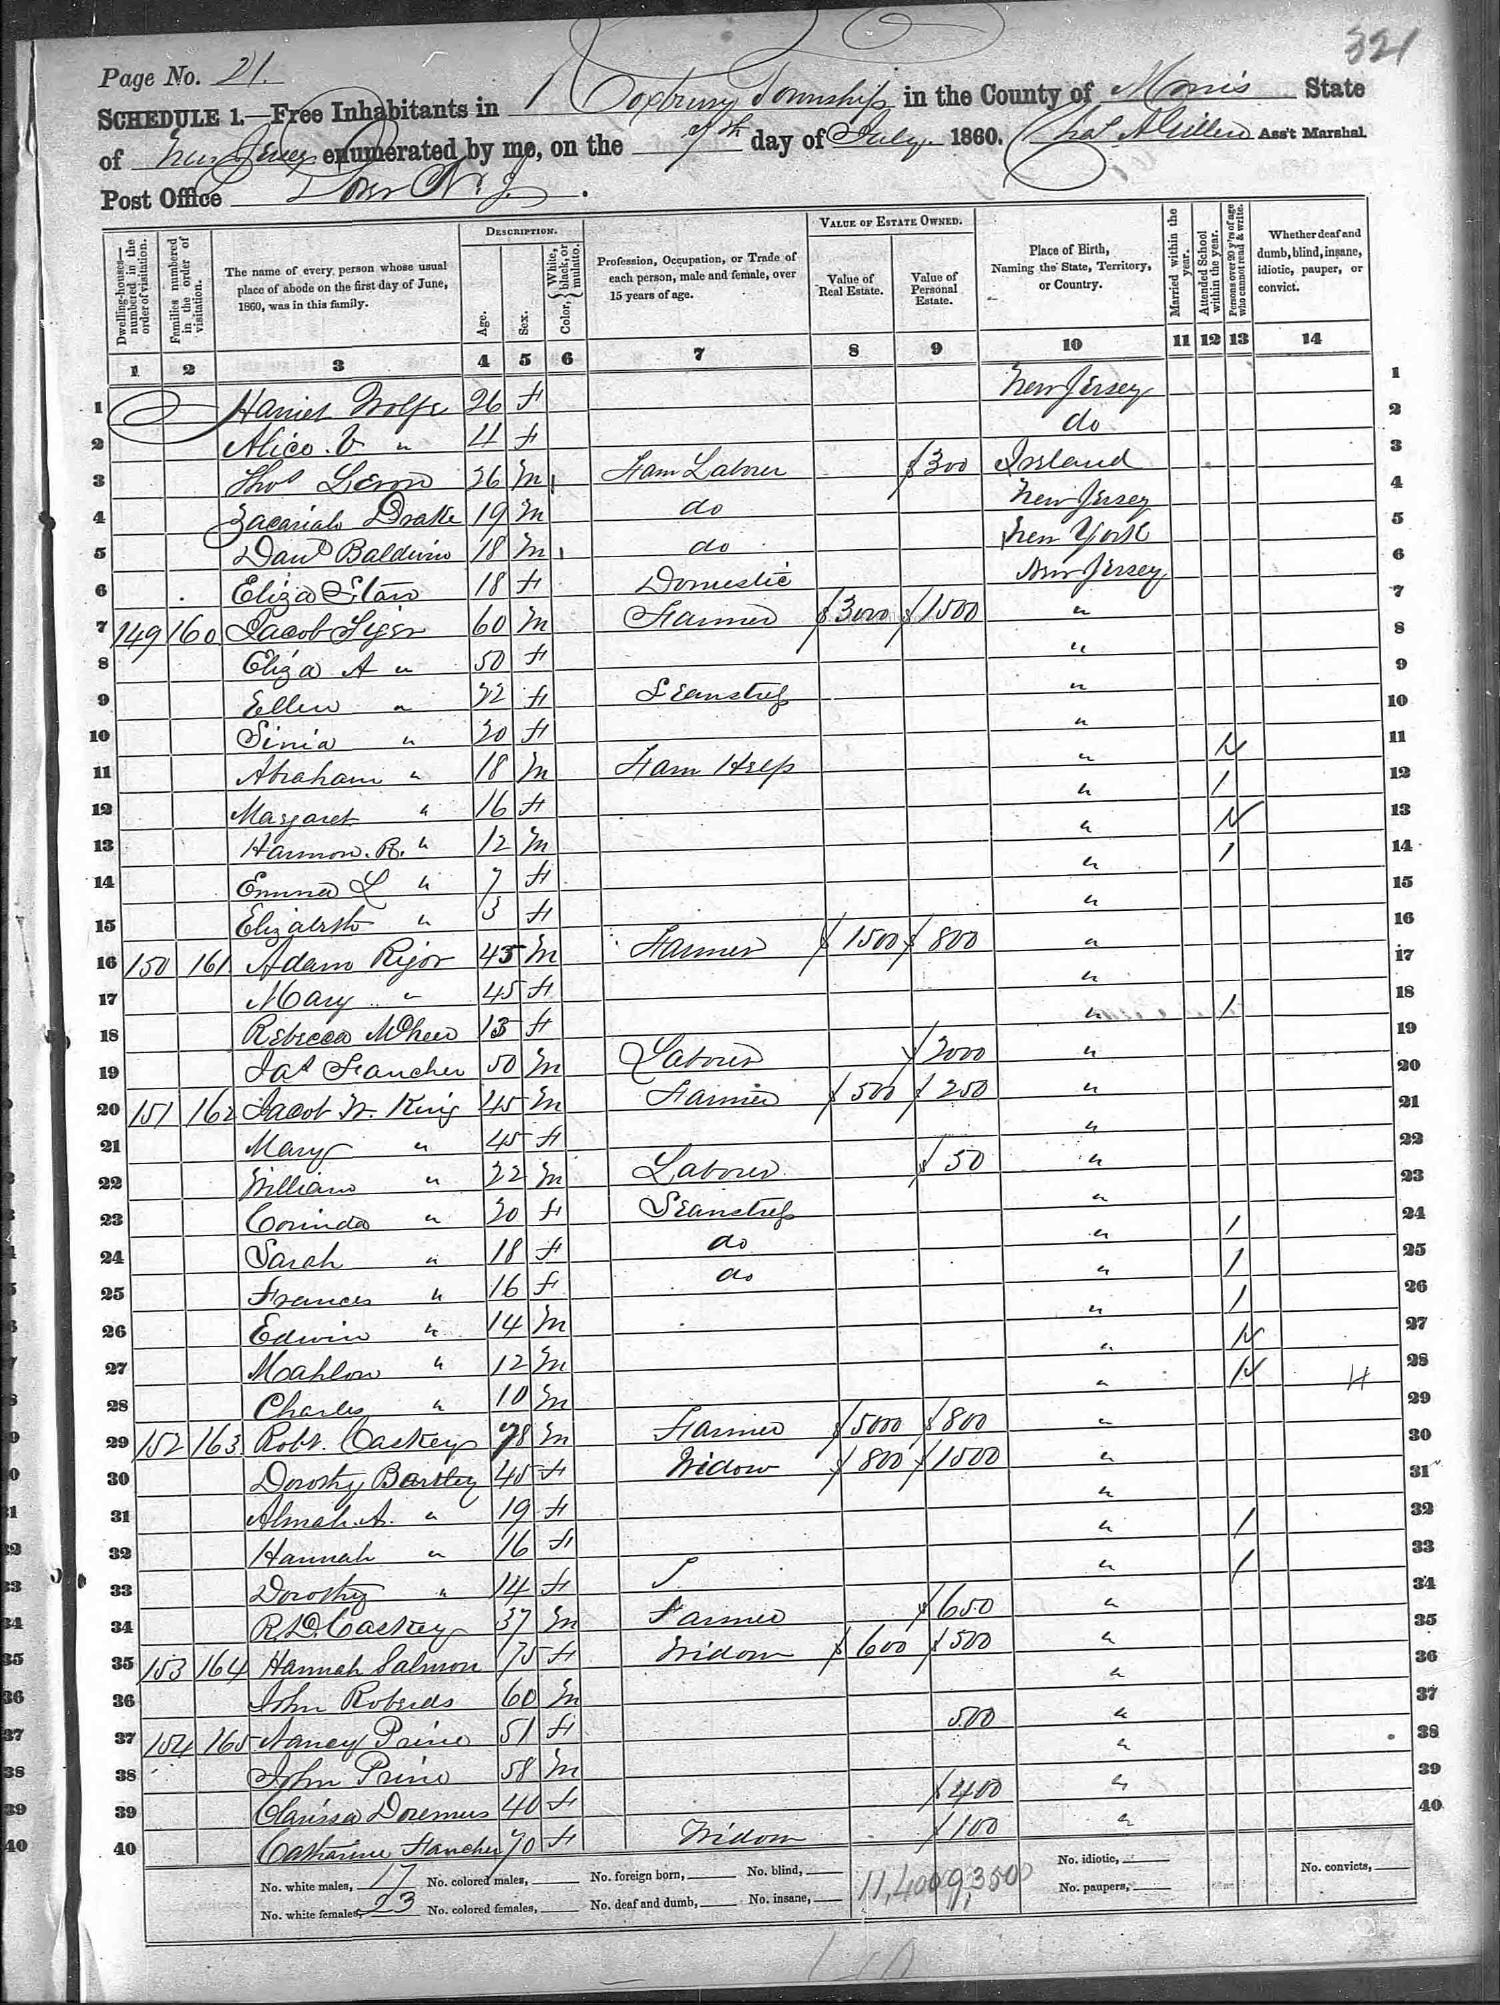 321
Page No. 21.
SCHEDULE 1.—Free Inhabitants in Roxbury Township in the County of Morris State
of New Jersey enumerated by me, on the 7th day of July. 1860. Chas A Gillen Ass't Marshal
Post Office Dover N. J.
Dwelling-houses—numbered in the order of visitation.
Families numbered in the order of visitation.
The name of every person whose usual place of abode on the first day of June, 1860, was in this family.
DESCRIPTION.
Age.
Sex.
Color, { White, black, or mulatto.
Profession, Occupation, or Trade of each person, male and female, over 15 years of age.
VALUE OF ESTATE OWNED.
Value of Real Estate.
Value of Personal Estate.
Place of Birth, Naming the State, Territory, or Country.
Married within the year.
Attended School within the year.
Persons over 20 y'rs of age who cannot read & write.
Whether deaf and dumb, blind, insane, idiotic, pauper, or convict.
1 2 3 4 5 6 7 8 9 10 11 12 13 14
1 Harriet Wolfe 26 f New Jersey 1
2 Alice. V " 4 f do 2
3 Thos 26 m Farm Laborer $300 Ireland 3
4 Zacariah Drake 19 m do New Jersey 4
5 Danl Baldwin 18 m do New York 5
6 Eliza 18 f Domestic New Jersey 6
7 149 160 Jacob 60 m Farmer $3000 $1500 " 7
8 Eliza A " 50 f " 8
9 Ellen " 22 f Seamstress " 9
10 " 20 f " 10
11 Abraham " 18 m Farm Help " 11
12 Margaret " 16 f " 1 12
13 Harmon. R. " 12 m " 13
14 Emma L " 7 f " 1 14
15 Elizabeth " 3 f " 15
16 150 161 Adam 45 m Farmer $1500 $800 " 16
17 Mary " 45 f " 17
18 Rebecca 13 f " 1 18
19 Jas Fancher 50 m Laborer $2000 " 19
20 151 162 Jacob W. King 45 m Farmer $500 $250 " 20
21 Mary " 45 f " 21
22 William " 22 m Laborer $50 " 22
23 Corinda " 20 f Seamstress " 23
24 Sarah " 18 f do " 1 24
25 Frances " 16 f do " 1 25
26 Edwin " 14 m " 1 26
27 Mahlon " 12 m " 27
28 Charles " 10 m " 28
29 152 163 Robt. Caskey 78 m Farmer $5000 $800 " 29
30 Dorothy Bartley 45 f Widow $800 $1500 " 30
31 Almah. A. " 19 f " 31
32 Hannah " 16 f " 1 32
33 Dorothy " 14 f " 1 33
34 R. D. Caskey 37 m Farmer $650 " 34
35 153 164 Hannah Salmon 75 f Widow $600 $500 " 35
36 John Roberds 60 m " 36
37 154 165 Nancy Prine 51 f 500 " 37
38 John Prine 58 m " 38
39 Clarissa Doremus 40 f $400 " 39
40 Catharine Fancher 70 f Widow $100 " 40
No. white males, 17 No. colored males, No. foreign born, No. blind, 11,400 9,350 No. idiotic, No. convicts,
No. white females, 23 No. colored females, No. deaf and dumb, No. insane, No. paupers,